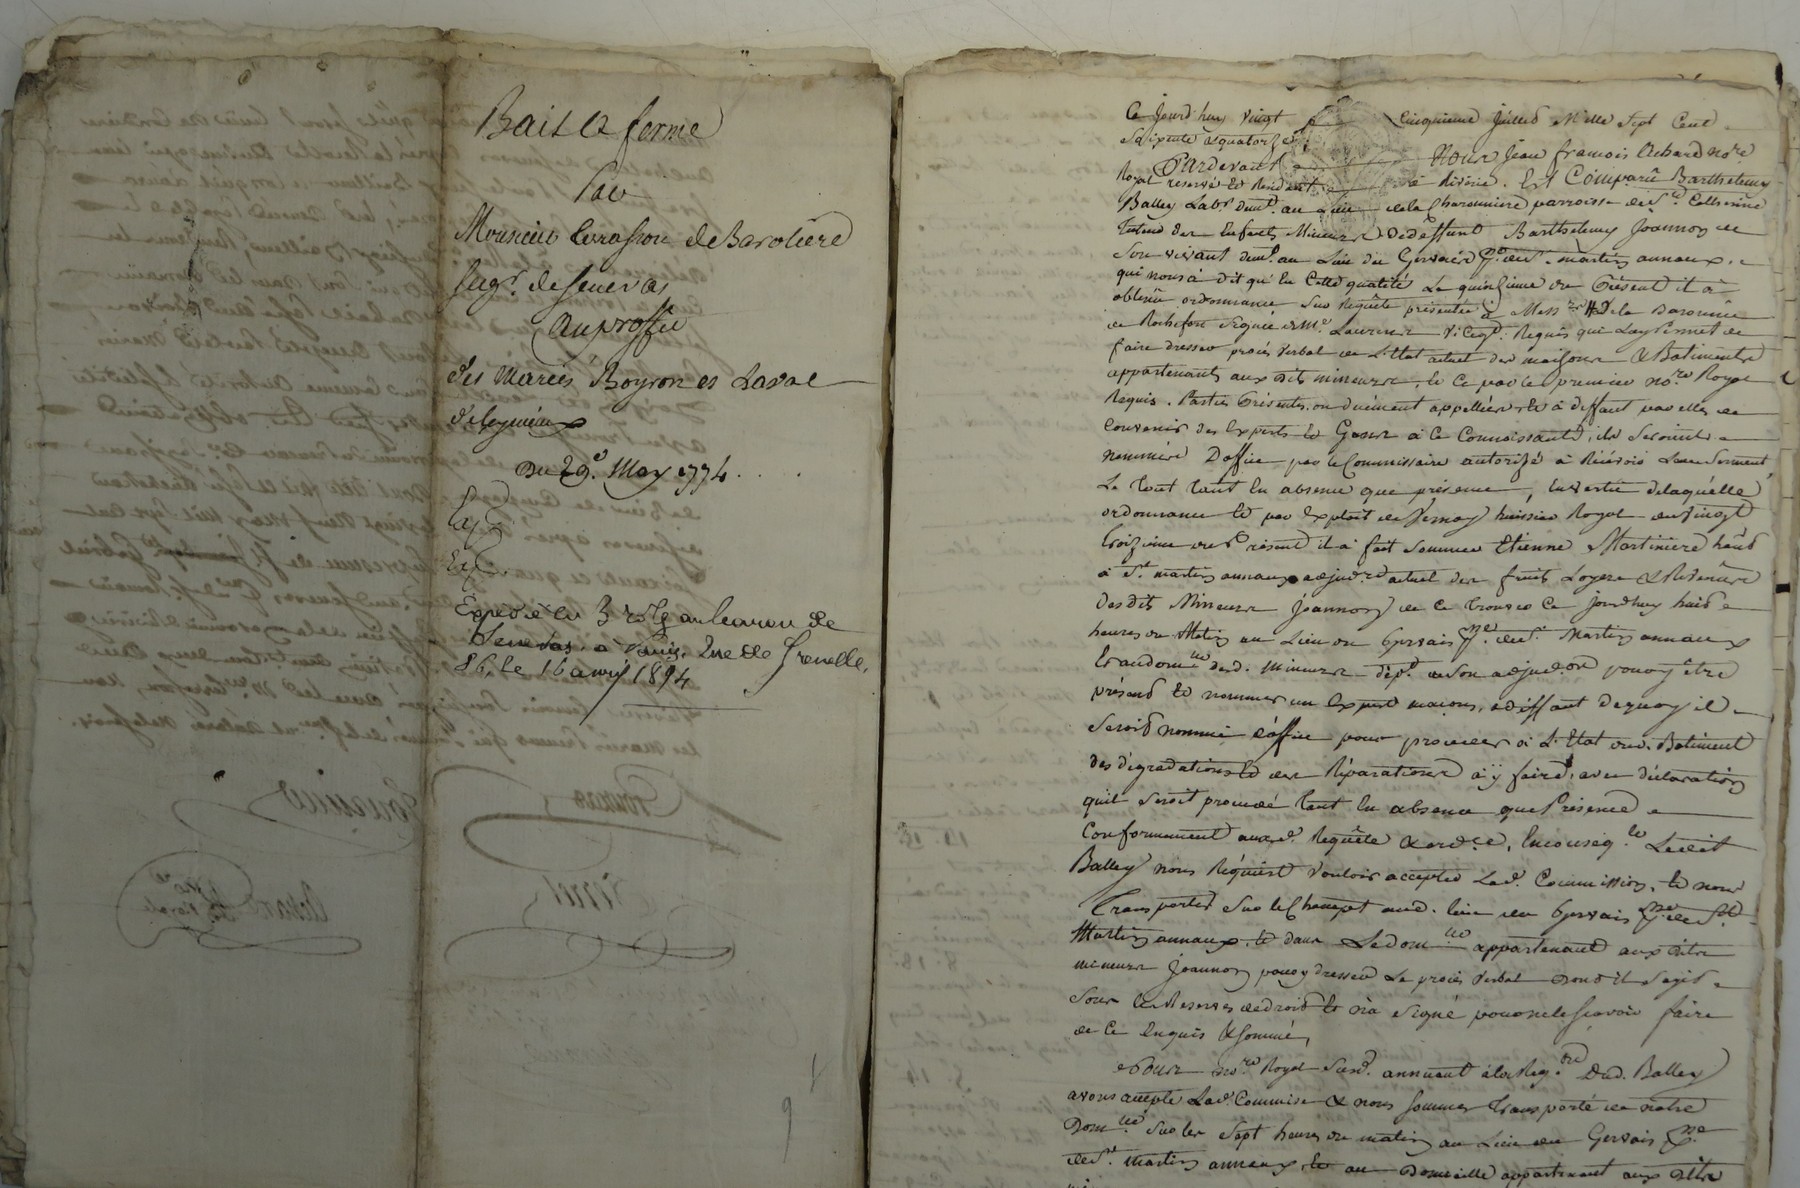 Bail a ferme
Par
Monsieur Courbon de Barolière
Seigr. de Senevas
au proffit
des mariés Boyron et Laval
du 29e. May 1774
Expedié en 3 rolles au baron de
Senevas, a Paris, Rue de Grenelle,
86, le 16 avril 1894
9
Ce Jourd'huy vingt cinquieme Juillet Mille Sept Cent
Soixente & quatorze
Pardevant Nous Jean francois Achard nore
Royal reservé et Residant à Riverie. Est Comparu Barthelemy
Balley Labr. demt. au Lieu de la Charonniere parroisse de Ste. Catherine
Tuteur des Enfants Mineurs de deffunt Barthelemy Joannon de
Son vivant demt. au Lieu du Gervais psse. de St. martin annaux.
qui nous à dit qu'en Cette qualité Le quinzieme du Présent il à
obtenu ordonnance Sur Requête présentée à Messrs de la Baronnie
de Rochefort Signée Me. Laurenson Vicegt. Requis qui Luy Permet de
faire dresser procés verbal de L'Etat actuel des maisons & Batiments
appartenants aux dits mineurs, et Ce par le premier nore Royal
Requis. Parties Présentes ou duëment appellées et à deffaut par elles de
Convenir des Experts et Gens à Ce Connoissants, ils Seroient
nommés D'office par le Commissaire autorisé à Recevoir Leur Serment,
Le tout tant en absence que présence, En vertu de laquelle
ordonnance et par Exploit de huissier Royal du vingt
troizieme du Présent il à fait Sommer Etienne Martiniere habt
à St. martin annaux adjudre. actuel des fruits Loyers & Revenus
Desdits Mineurs Joannon de Se trouver Ce jourdhuy huit
heures du Matin au Lieu du Gervais psse. de St. Martin annaux
Et au domlle des d. mineurs dépt. de Son adjudon pour y être
présent et nommer un Expert maçons, à deffaut de quoy il
Seroit nommé d'office pour proceder à L'Etat dud. Batiment
des dégradations et des Réparations à y faire, avec déclaration
quil Seroit procedé tant En absence que Présence
Conformément auxd. Requête & ordce, En conseqce Ledit
Balley nous Réquiert Vouloir accepter Lad. Commission, et nous
Transporter Sur le Champt aud. lieu du Gervais psse. de St.
Martin annaux et dans Le domlle appartenant aux dits
mineurs Joannon pour y dresser Le procés Verbal Dont il S'agit
Sous les Reserves de droit Et n'a Signé pour ne le Scavoir faire
de Ce Enquis & Sommé,
Nous nore Royal Susd. annuant à la Reqon Dud. Balley
avons accepté Lad. Commission & nous Sommes transporté de notre
Domlle Sur les Sept heures du matin au Lieu du Gervais psse
de St. Martin annaux, et au Domicille appartenant aux dits